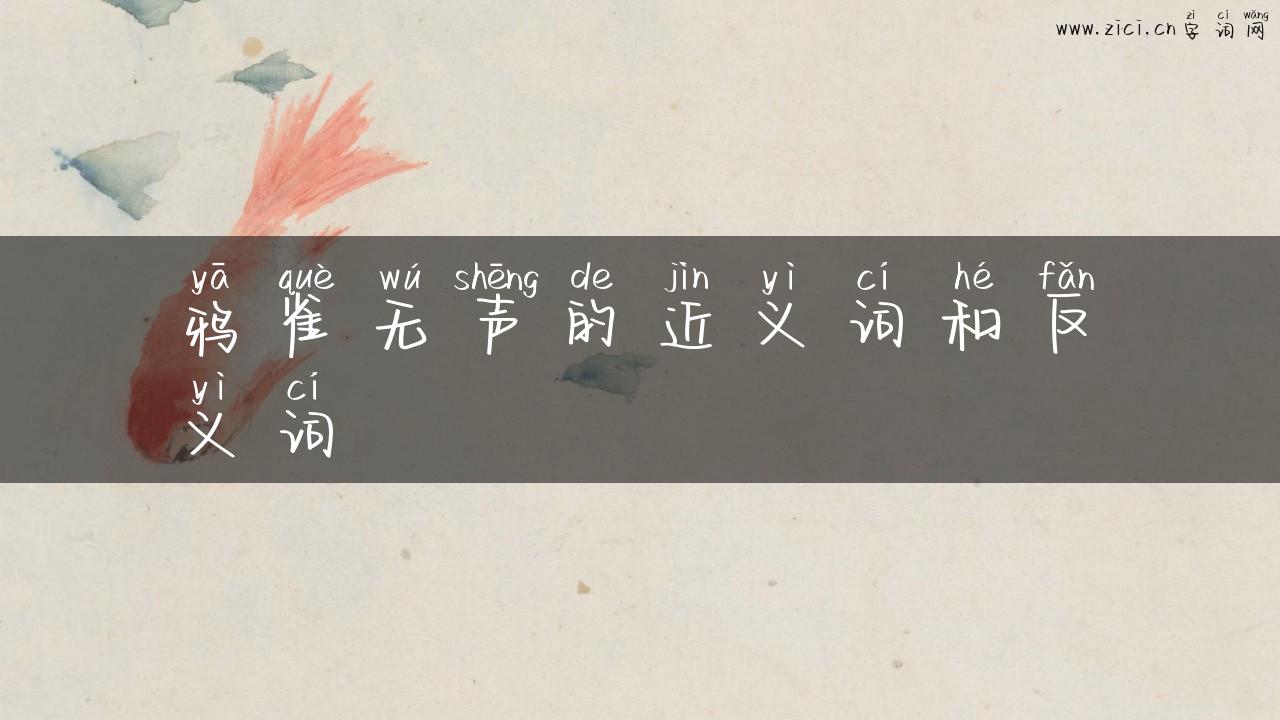 zì cí wǎng
www.zici.cn 字词网
yā què wú shēng de jìn yì cí hé fǎn
鸦雀无声的近义词和反
yì cí
义词